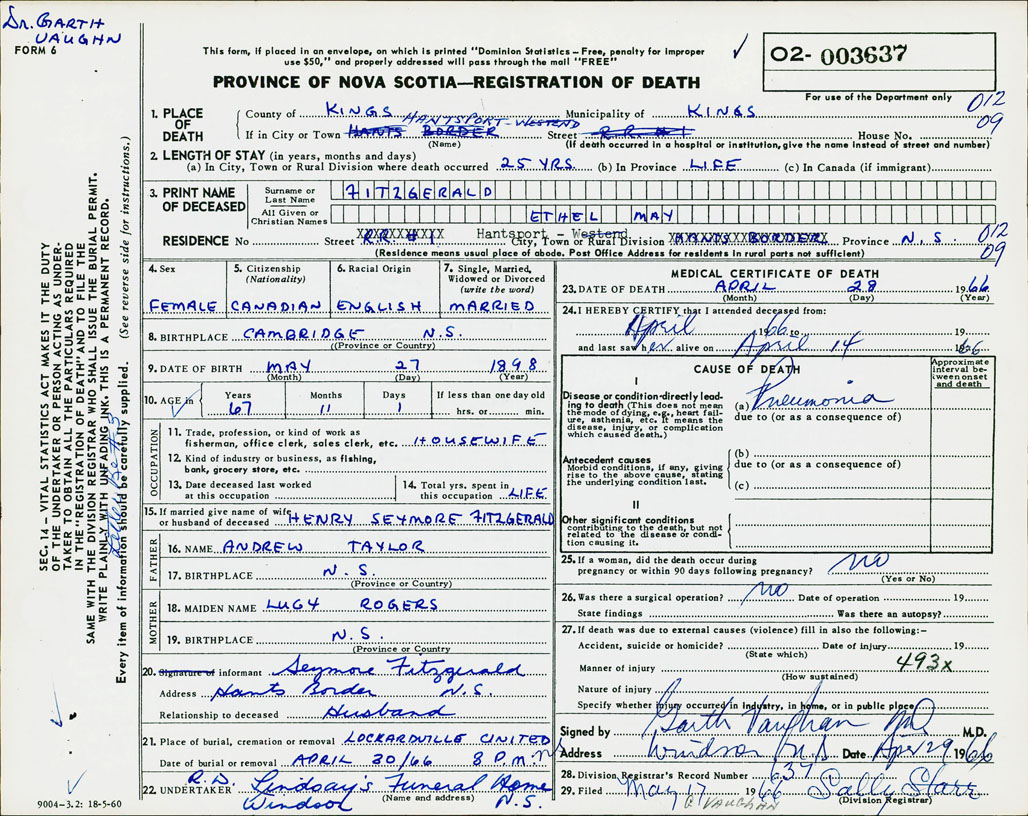 Dr. GARTH
VAUGHN
FORM 6
This form, if placed in an envelope, on which is printed "Dominion Statistics – Free, penalty for improper
use $50," and properly addressed will pass through the mail "FREE"
✓
O2- 003637
For use of the Department only
PROVINCE OF NOVA SCOTIA—REGISTRATION OF DEATH
1. PLACE OF DEATH
County of KINGS Municipality of KINGS 012
HANTSPORT-WESTEND 09
If in City or Town HANTS BORDER Street R.R. #1 House No.
(Name) (If death occurred in a hospital or institution, give the name instead of street and number)
2. LENGTH OF STAY (in years, months and days)
(a) In City, Town or Rural Division where death occurred 25 YRS. (b) In Province LIFE (c) In Canada (if immigrant)
3. PRINT NAME OF DECEASED
Surname or Last Name FITZGERALD
All Given or Christian Names ETHEL MAY
Hantsport - Westend
RESIDENCE No Street R.R. #1 City, Town or Rural Division HANTS BORDER Province N.S. 012
09
(Residence means usual place of abode. Post Office Address for residents in rural parts not sufficient)
4. Sex
FEMALE
5. Citizenship
(Nationality)
CANADIAN
6. Racial Origin
ENGLISH
7. Single, Married,
Widowed or Divorced
(write the word)
MARRIED
8. BIRTHPLACE CAMBRIDGE N.S.
(Province or Country)
9. DATE OF BIRTH MAY 27 1898
(Month) (Day) (Year)
10. AGE in Years Months Days If less than one day old
✓ 67 11 1 hrs. or min.
OCCUPATION
11. Trade, profession, or kind of work as
fisherman, office clerk, sales clerk, etc. HOUSEWIFE
12. Kind of industry or business, as fishing,
bank, grocery store, etc.
13. Date deceased last worked
at this occupation
14. Total yrs. spent in
this occupation LIFE
15. If married give name of wife
or husband of deceased HENRY SEYMORE FITZGERALD
FATHER
16. NAME ANDREW TAYLOR
17. BIRTHPLACE N.S.
(Province or Country)
MOTHER
18. MAIDEN NAME LUGY ROGERS
19. BIRTHPLACE N.S.
(Province or Country)
20. Signature of informant Seymore Fitzgerald
Address Hants Border N.S.
Relationship to deceased Husband
21. Place of burial, cremation or removal LOCKARDVILLE UNITED
Date of burial or removal APRIL 30/66 2 P.M.
22. UNDERTAKER R.D. Lindsay's Funeral Home
(Name and address)
Windsor N.S.
MEDICAL CERTIFICATE OF DEATH
23. DATE OF DEATH APRIL 28 1966
(Month) (Day) (Year)
24. I HEREBY CERTIFY that I attended deceased from:
April 1966 to 19
and last saw her alive on April 14 1966
CAUSE OF DEATH
Approximate
interval be-
tween onset
and death
I
Disease or condition directly lead-
ing to death (This does not mean
the mode of dying, e.g., heart fail-
ure, asthenia, etc. It means the
disease, injury, or complication
which caused death.)
(a) Pneumonia
due to (or as a consequence of)
Antecedent causes
Morbid conditions, if any, giving
rise to the above cause, stating
the underlying condition last.
(b)
due to (or as a consequence of)
(c)
II
Other significant conditions
contributing to the death, but not
related to the disease or condi-
tion causing it.
25. If a woman, did the death occur during
pregnancy or within 90 days following pregnancy? no
(Yes or No)
26. Was there a surgical operation? no Date of operation 19
State findings Was there an autopsy?
27. If death was due to external causes (violence) fill in also the following:–
Accident, suicide or homicide? Date of injury 19
(State which)
493x
Manner of injury
(How sustained)
Nature of injury
Specify whether injury occurred in industry, in home, or in public place
Signed by Garth Vaughan MD M.D.
Address Windsor N.S Date Apr 29 1966
28. Division Registrar's Record Number 637
29. Filed May 17 1966 Sally Starr
G VAUGHAN (Division Registrar)
SEC. 14 – VITAL STATISTICS ACT MAKES IT THE DUTY
OF THE UNDERTAKER OR PERSON ACTING AS UNDER-
TAKER TO OBTAIN ALL THE PARTICULARS REQUIRED
IN THE "REGISTRATION OF DEATH" AND TO FILE THE
SAME WITH THE DIVISION REGISTRAR WHO SHALL ISSUE THE BURIAL PERMIT.
WRITE PLAINLY WITH UNFADING INK. THIS IS A PERMANENT RECORD.
Every item of information should be carefully supplied. (See reverse side for instructions.)
9004–3.2: 18-5-60